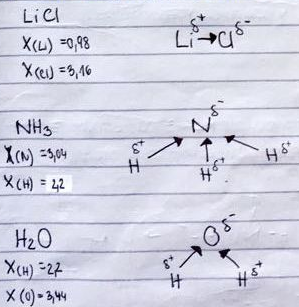 LiCl
X(Li) = 0,98
X(Cl) = 3,16
δ+ δ-
Li → Cl
NH3
X(N) = 3,04
X(H) = 2,2
δ-
N
δ+ δ+
H H
δ+
H
H2O
X(H) = 2,2
X(O) = 3,44
δ-
O
δ+ δ+
H H